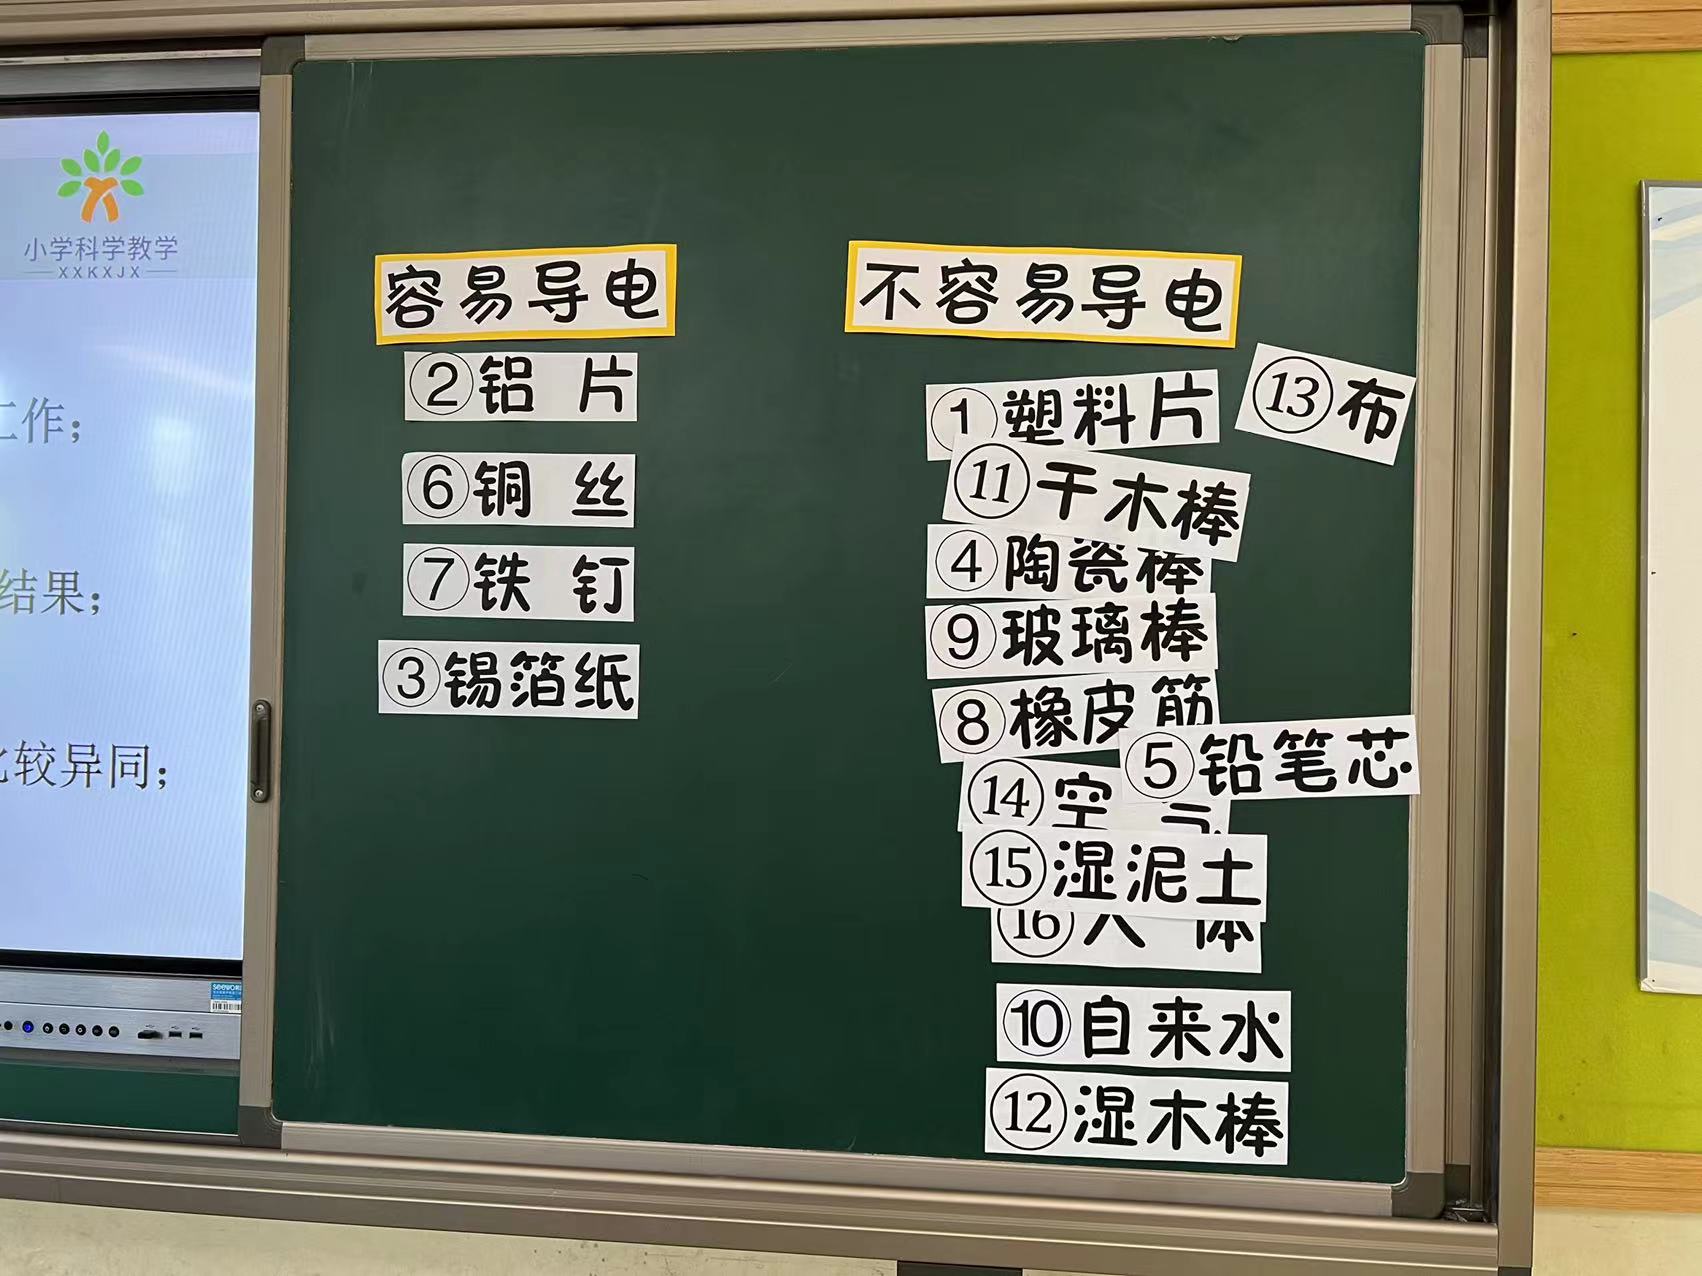 小学科学教学
XXKXJX
工作；
结果；
比较异同；
seewo
容易导电
②铝 片
⑥铜 丝
⑦铁 钉
③锡箔纸
不容易导电
⑬布
①塑料片
⑪干木棒
④陶瓷棒
⑨玻璃棒
⑧橡皮筋
⑤铅笔芯
⑭空 气
⑮湿泥土
⑯人 体
⑩自来水
⑫湿木棒